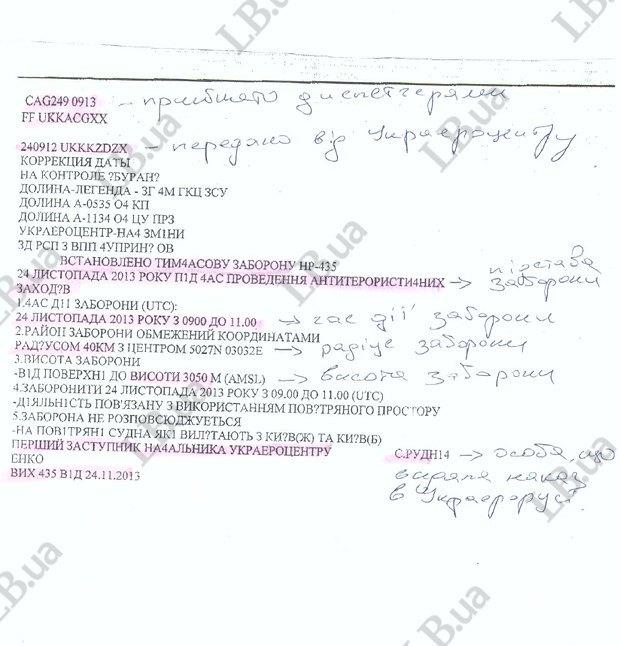 CAG249 0913 – прийнято диспетчерами
FF UKKACGXX
240912 UKKKZDZX – передано від Украероцентру
КОРРЕКЦИЯ ДАТЫ
НА КОНТРОЛЬ ?БУРАН?
ДОЛИНА-ЛЕГЕНДА - ЗГ 4М ГКЦ ЗСУ
ДОЛИНА А-0535 О4 КП
ДОЛИНА А-1134 О4 ЦУ ПРЗ
УКРАЕРОЦЕНТР-НА4 ЗМ1НИ
ЗД РСП З ВПП 4УПРИН? ОВ
ВСТАНОВЛЕНО ТИМ4АСОВУ ЗАБОРОНУ НР-435
24 ЛИСТОПАДА 2013 РОКУ П1Д 4АС ПРОВЕДЕННЯ АНТИТЕРОРИСТИ4НИХ → підстава заборони
ЗАХОД?В
1.4АС Д1Ї ЗАБОРОНИ (UTC):
24 ЛИСТОПАДА 2013 РОКУ З 0900 ДО 11.00 → час дії заборони
2.РАЙОН ЗАБОРОНИ ОБМЕЖЕНИЙ КООРДИНАТАМИ
РАД?УСОМ 40КМ З ЦЕНТРОМ 5027N 03032E → радіус заборони
3.ВИСОТА ЗАБОРОНИ
-В1Д ПОВЕРХН1 ДО ВИСОТИ 3050 М (AMSL) → висота заборони
4.ЗАБОРОНИТИ 24 ЛИСТОПАДА 2013 РОКУ З 09.00 ДО 11.00 (UTC)
-Д1ЯЛЬН1СТЬ ПОВ'ЯЗАНУ З ВИКОРИСТАННЯМ ПОВ?ТРЯНОГО ПРОСТОРУ
5.ЗАБОРОНА НЕ РОЗПОВСЮДЖУЕТЬСЯ
-НА ПОВ1ТРЯН1 СУДНА ЯК1 ВИЛ?ТАЮТЬ З КИ?В(Ж) ТА КИ?В(Б)
ПЕРШИЙ ЗАСТУПНИК НА4АЛЬНИКА УКРАЕРОЦЕНТРУ С.РУДН14 → особа, що
ЕНКО
ВИХ 435 В1Д 24.11.2013
наказ
в Украерорусі
LB.ua
LB.ua
LB.ua
LB.ua
LB.ua
LB.ua
LB.ua
LB.ua
LB.ua